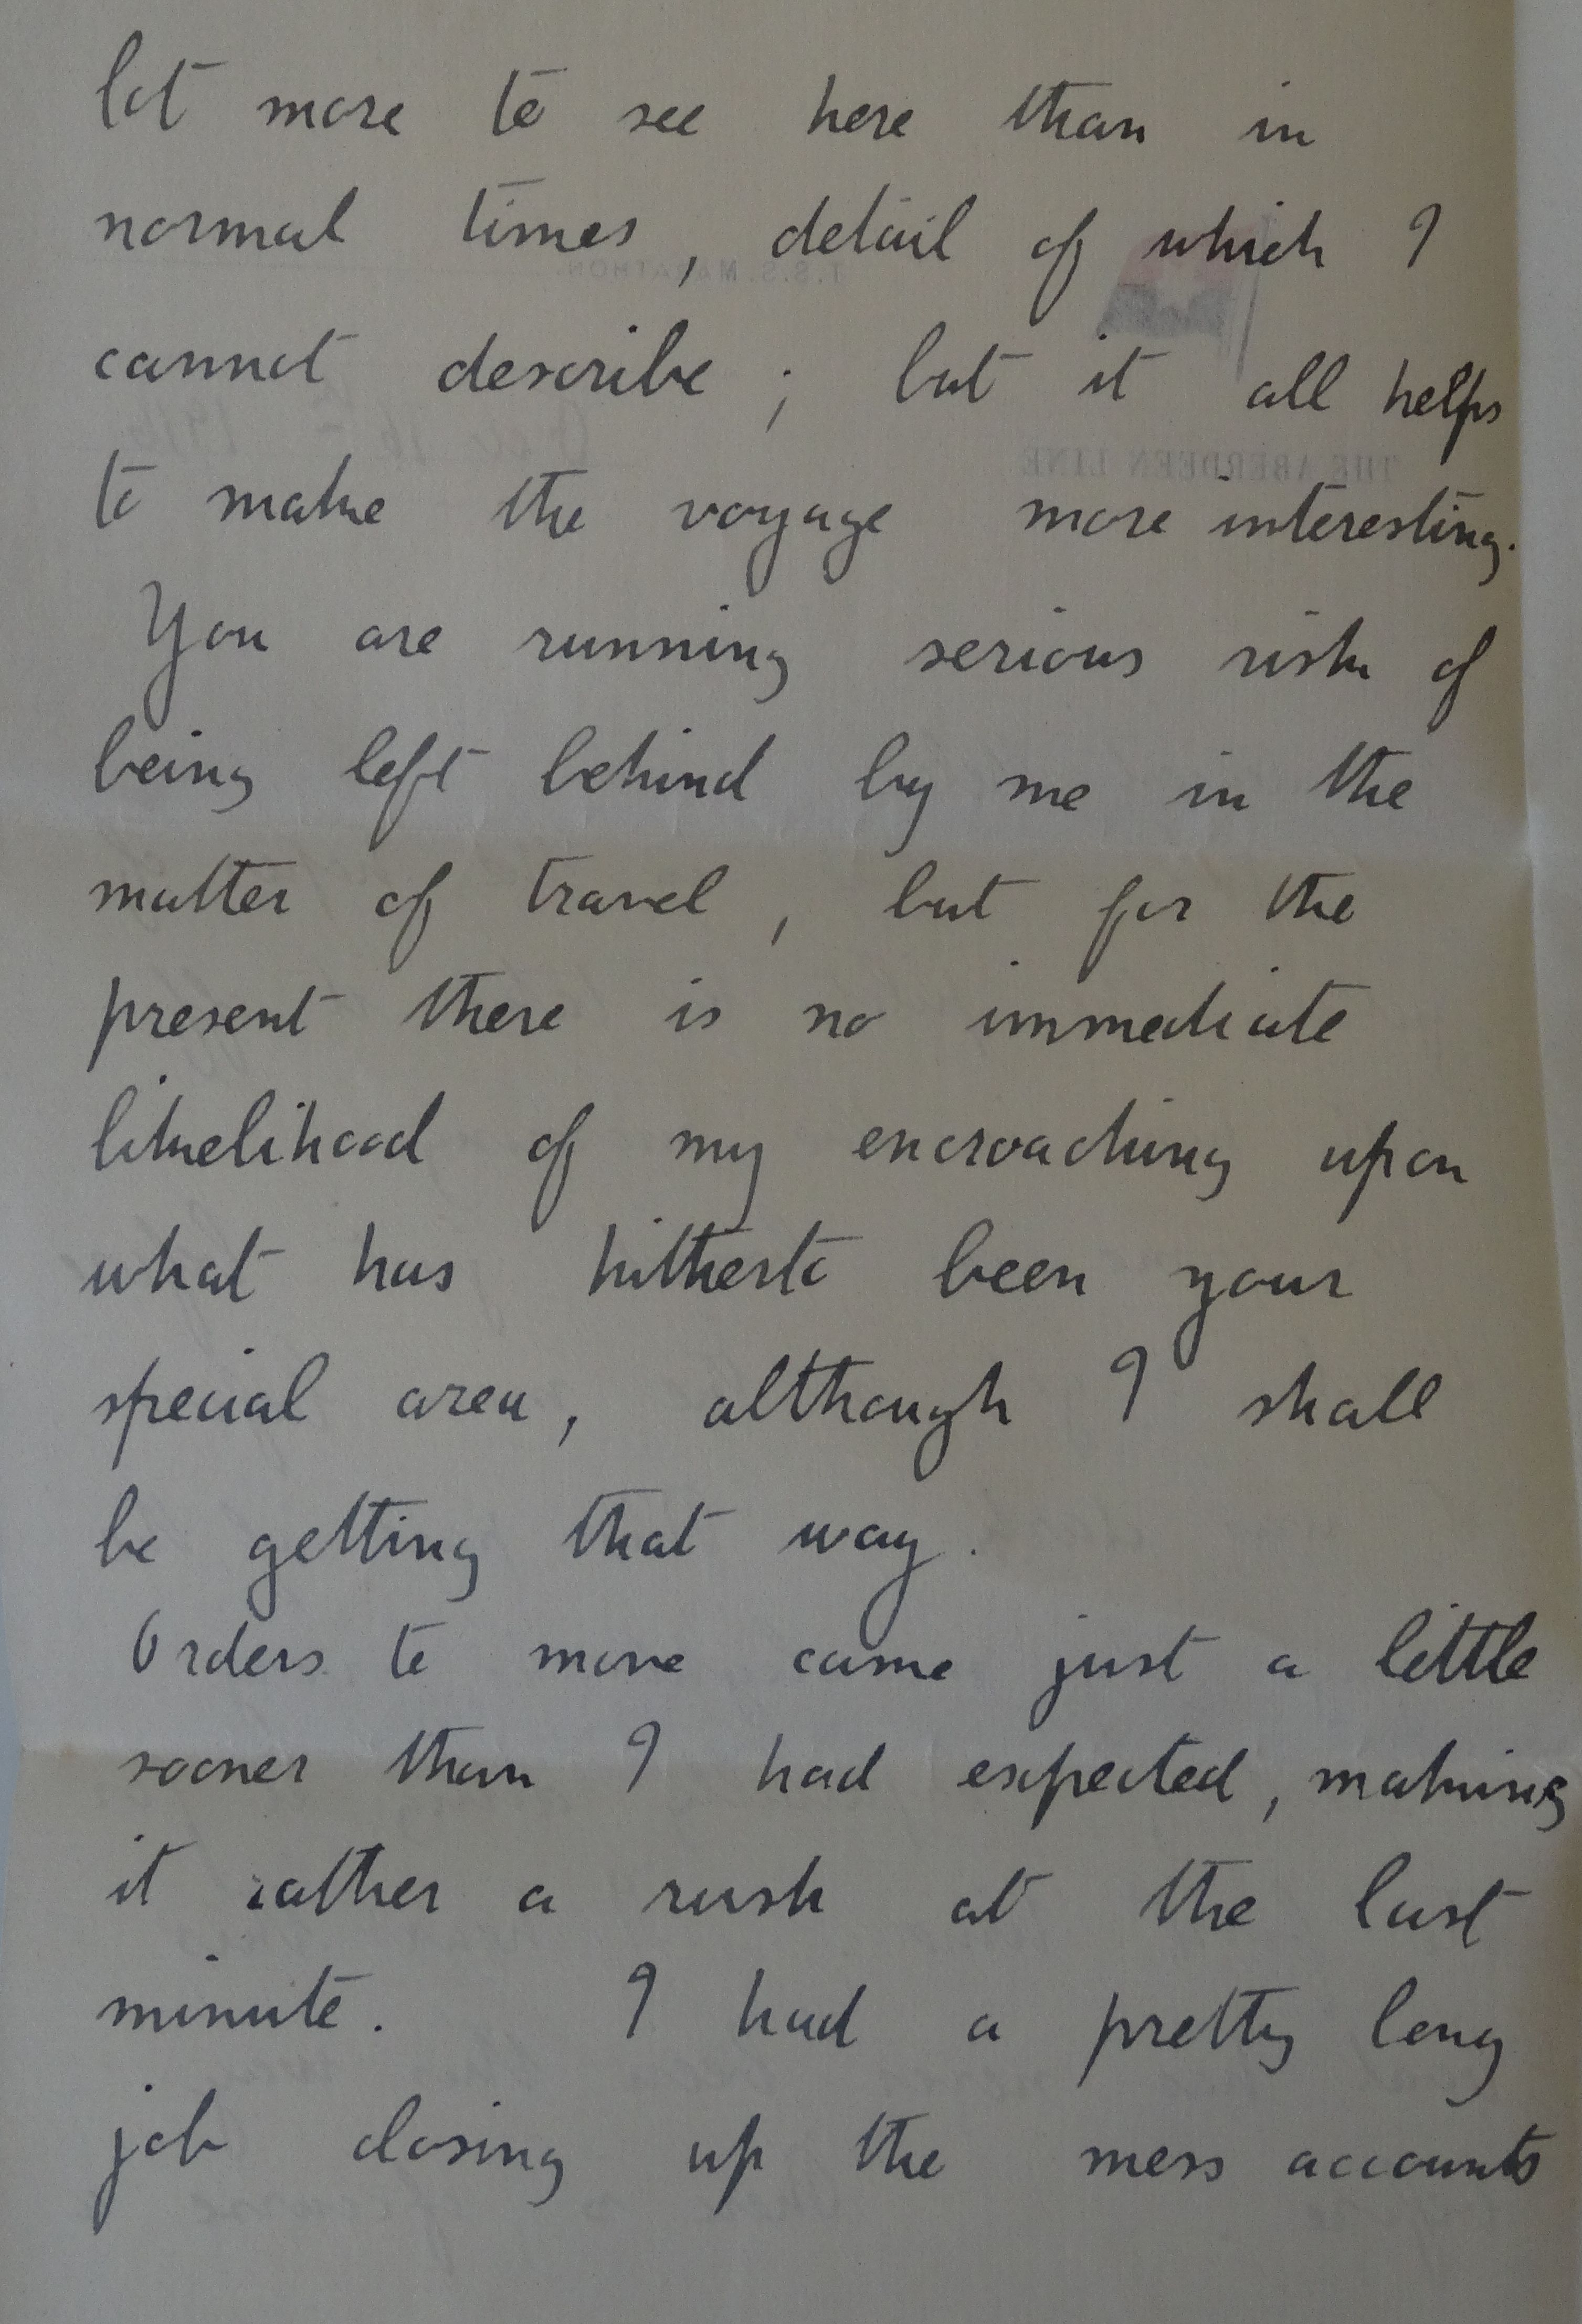 lot more to see here than in
normal times, detail of which I
cannot describe; but it all helps
to make the voyage more interesting.
You are running serious risk of
being left behind by me in the
matter of travel, but for the
present there is no immediate
likelihood of my encroaching upon
what has hitherto been your
special area, although I shall
be getting that way.
Orders to move came just a little
sooner than I had expected, making
it rather a rush at the last
minute. I had a pretty long
job closing up the mess accounts
T.S.S. MARATHON
THE ABERDEEN LINE